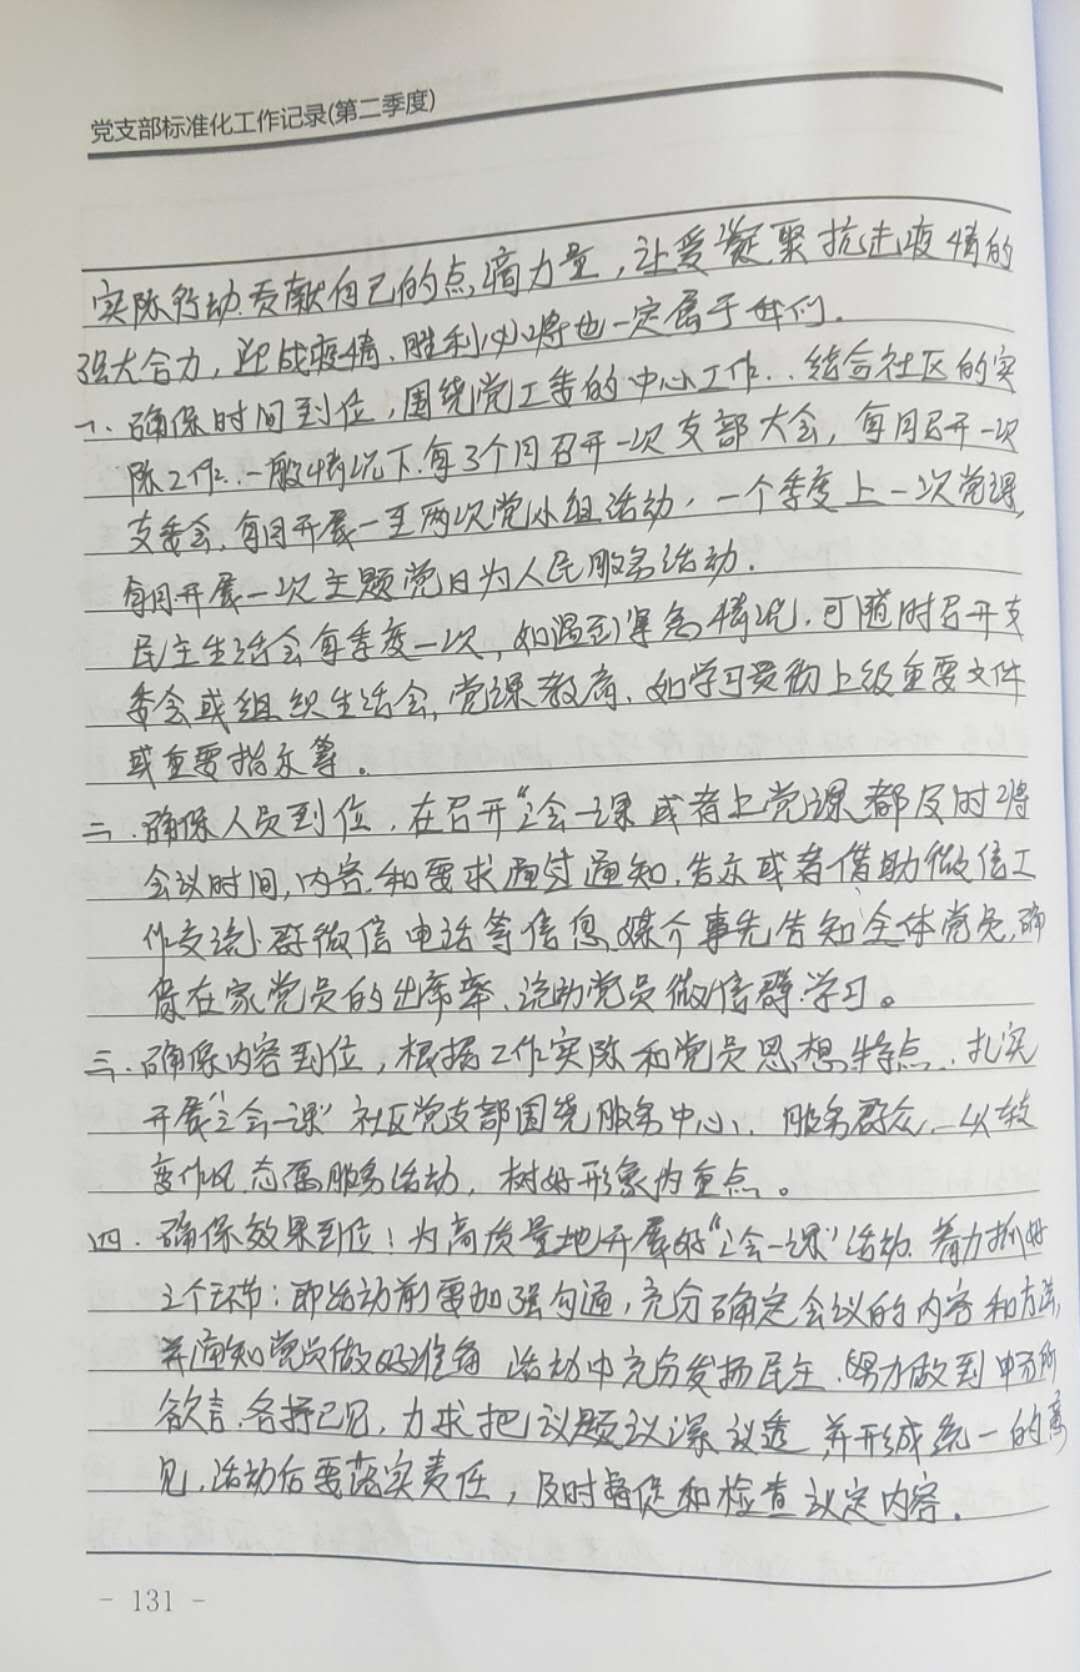 党支部标准化工作记录(第二季度)
实际行动.贡献自己的点滴力量,让爱凝聚抗击疫情的
强大合力,迎战疫情、胜利必将也一定属于我们.
一、确保时间到位,围绕党工委的中心工作..结合社区的实
际工作.一般情况下.每3个月召开一次支部大会,每月召开一次
支委会,每月开展一至两次党小组活动,一个季度上一次党课,
每月开展一次主题党日为人民服务活动.
民主生活会每季度一次,如遇到紧急情况.可随时召开支
委会或组织生活会,党课教育、如学习贯彻上级重要文件
或重要指示等。
二.确保人员到位.在召开“三会一课或者上党课都及时将
会议时间,内容.和要求通过通知.告示或者借助微信工
作交流群微信电话等信息媒介事先告知全体党员,确
保在家党员的出席率、流动党员微信群.学习。
三.确保内容到位,根据工作实际和党员思想特点.扎实
开展“三会一课”社区党支部围绕服务中心、服务群众.以转
变作风.志愿服务活动,树好形象为重点。
四.确保效果到位!为高质量地开展好“三会一课”活动.着力抓好
三个环节:即活动前要加强沟通,充分确定会议的内容和方法,
并通知党员做好准备 活动中充分发扬民主.努力做到畅所
欲言.各抒己见,力求把议题议深议透,并形成统一的意
见,活动后要落实责任,及时督促和检查议定内容.
- 131 -